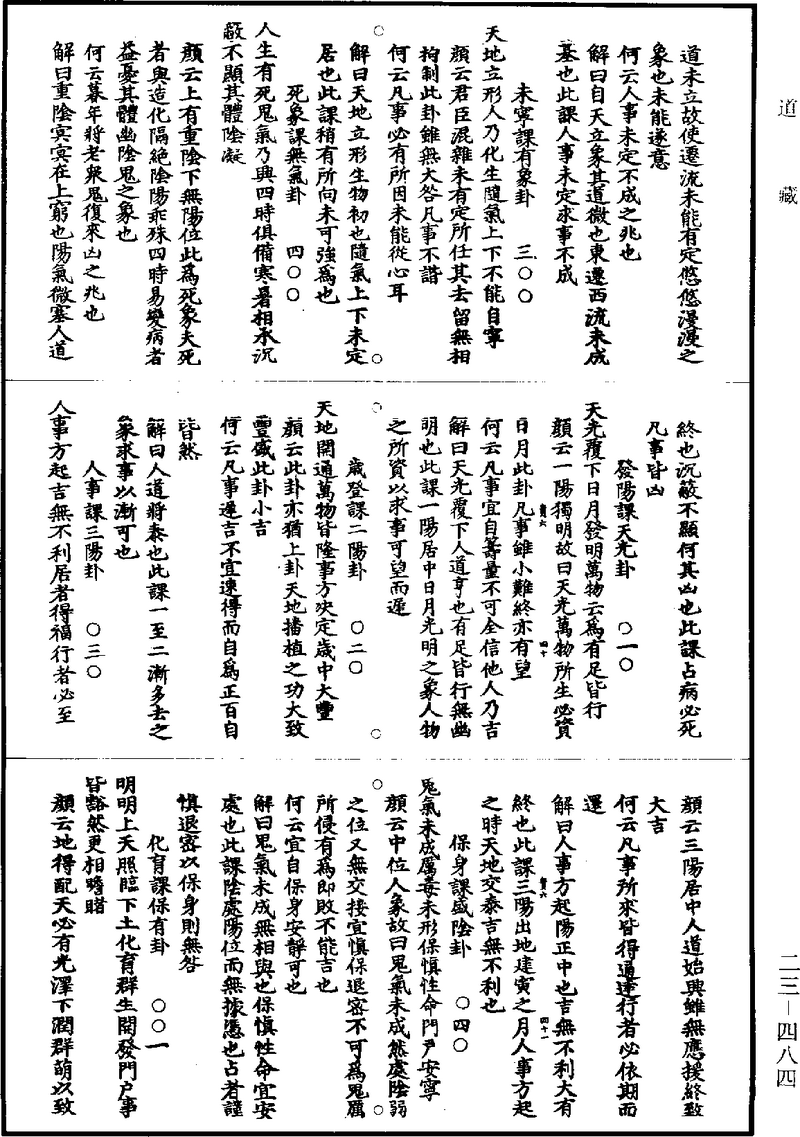 道藏
道未立故使遷流未能有定悠悠漫漫之
象也未能遂意
何云人事未定不成之兆也
解曰自天立象其道微也東遷西流未成
基也此課人事未定求事不成
未寧課有象卦 三〇〇
天地立形人乃化生隨氣上下不能自寧
顏云君臣混雜未有定所任其去留無相
拘制此卦雖無大咎凡事不諧
何云凡事必有所因未能從心耳
解曰天地立形生物初也隨氣上下未定
居也此課稍有所向未可強為也
死象課無氣卦 四〇〇
人生有死鬼氣乃興四時俱備寒暑相承沉
蔽不顯其體陰凝
顏云上有重陰下無陽位此為死象夫死
者與造化隔絕陰陽乖殊四時易變病者
益憂其體幽陰鬼之象也
何云暮年將老衆鬼復來凶之兆也
解曰重陰冥冥在上窮也陽氣微塞人道
終也沉蔽不顯何其凶也此課占病必死
凡事皆凶
發陽課天光卦 〇一〇
天光覆下日月發明萬物云為有足皆行
顏云一陽獨明故曰天光萬物所生必資
日月此卦凡事雖小難終亦有望
何云凡事宜自籌量不可全信他人乃吉
解曰天光覆下人道亨也有足皆行無幽
明也此課一陽居中日月光明之象人物
之所資以求事可望而遲
歲登課二陽卦 〇二〇
天地開通萬物皆隆事方決定歲中大豐
顏云此卦亦猶上卦天地播植之功大致
豐盛此卦小吉
何云凡事遲吉不宜速得而自為正百自
皆然
解曰人道將泰也此課一至二漸多去之
象求事以漸可也
人事課三陽卦 〇三〇
人事方起吉無不利居者得福行者必至
顏云三陽居中人道始興雖無應援終致
大吉
何云凡事所求皆得通達行者必依期而
還
解曰人事方起陽正中也吉無不利大有
終也此課三陽出地建寅之月人事方起
之時天地交泰吉無不利也
保身課盛陰卦 〇四〇
鬼氣未成厲毒未形保慎性命門户安寧
顏云中位人象故曰鬼氣未成然處陰弱
之位又無交接宜慎保退密不可為鬼厲
所侵有為即敗不能吉也
何云宜自保身安靜可也
解曰鬼氣未成無相與也保慎性命宜安
處也此課陰處陽位而無據憑也占者謹
慎退密以保身則無咎
化育課保有卦 〇〇一
明明上天照臨下土化育群生開發門户事
皆豁然更相瞻睹
顏云地得配天必有光澤下潤群萌以致
二三—四八四